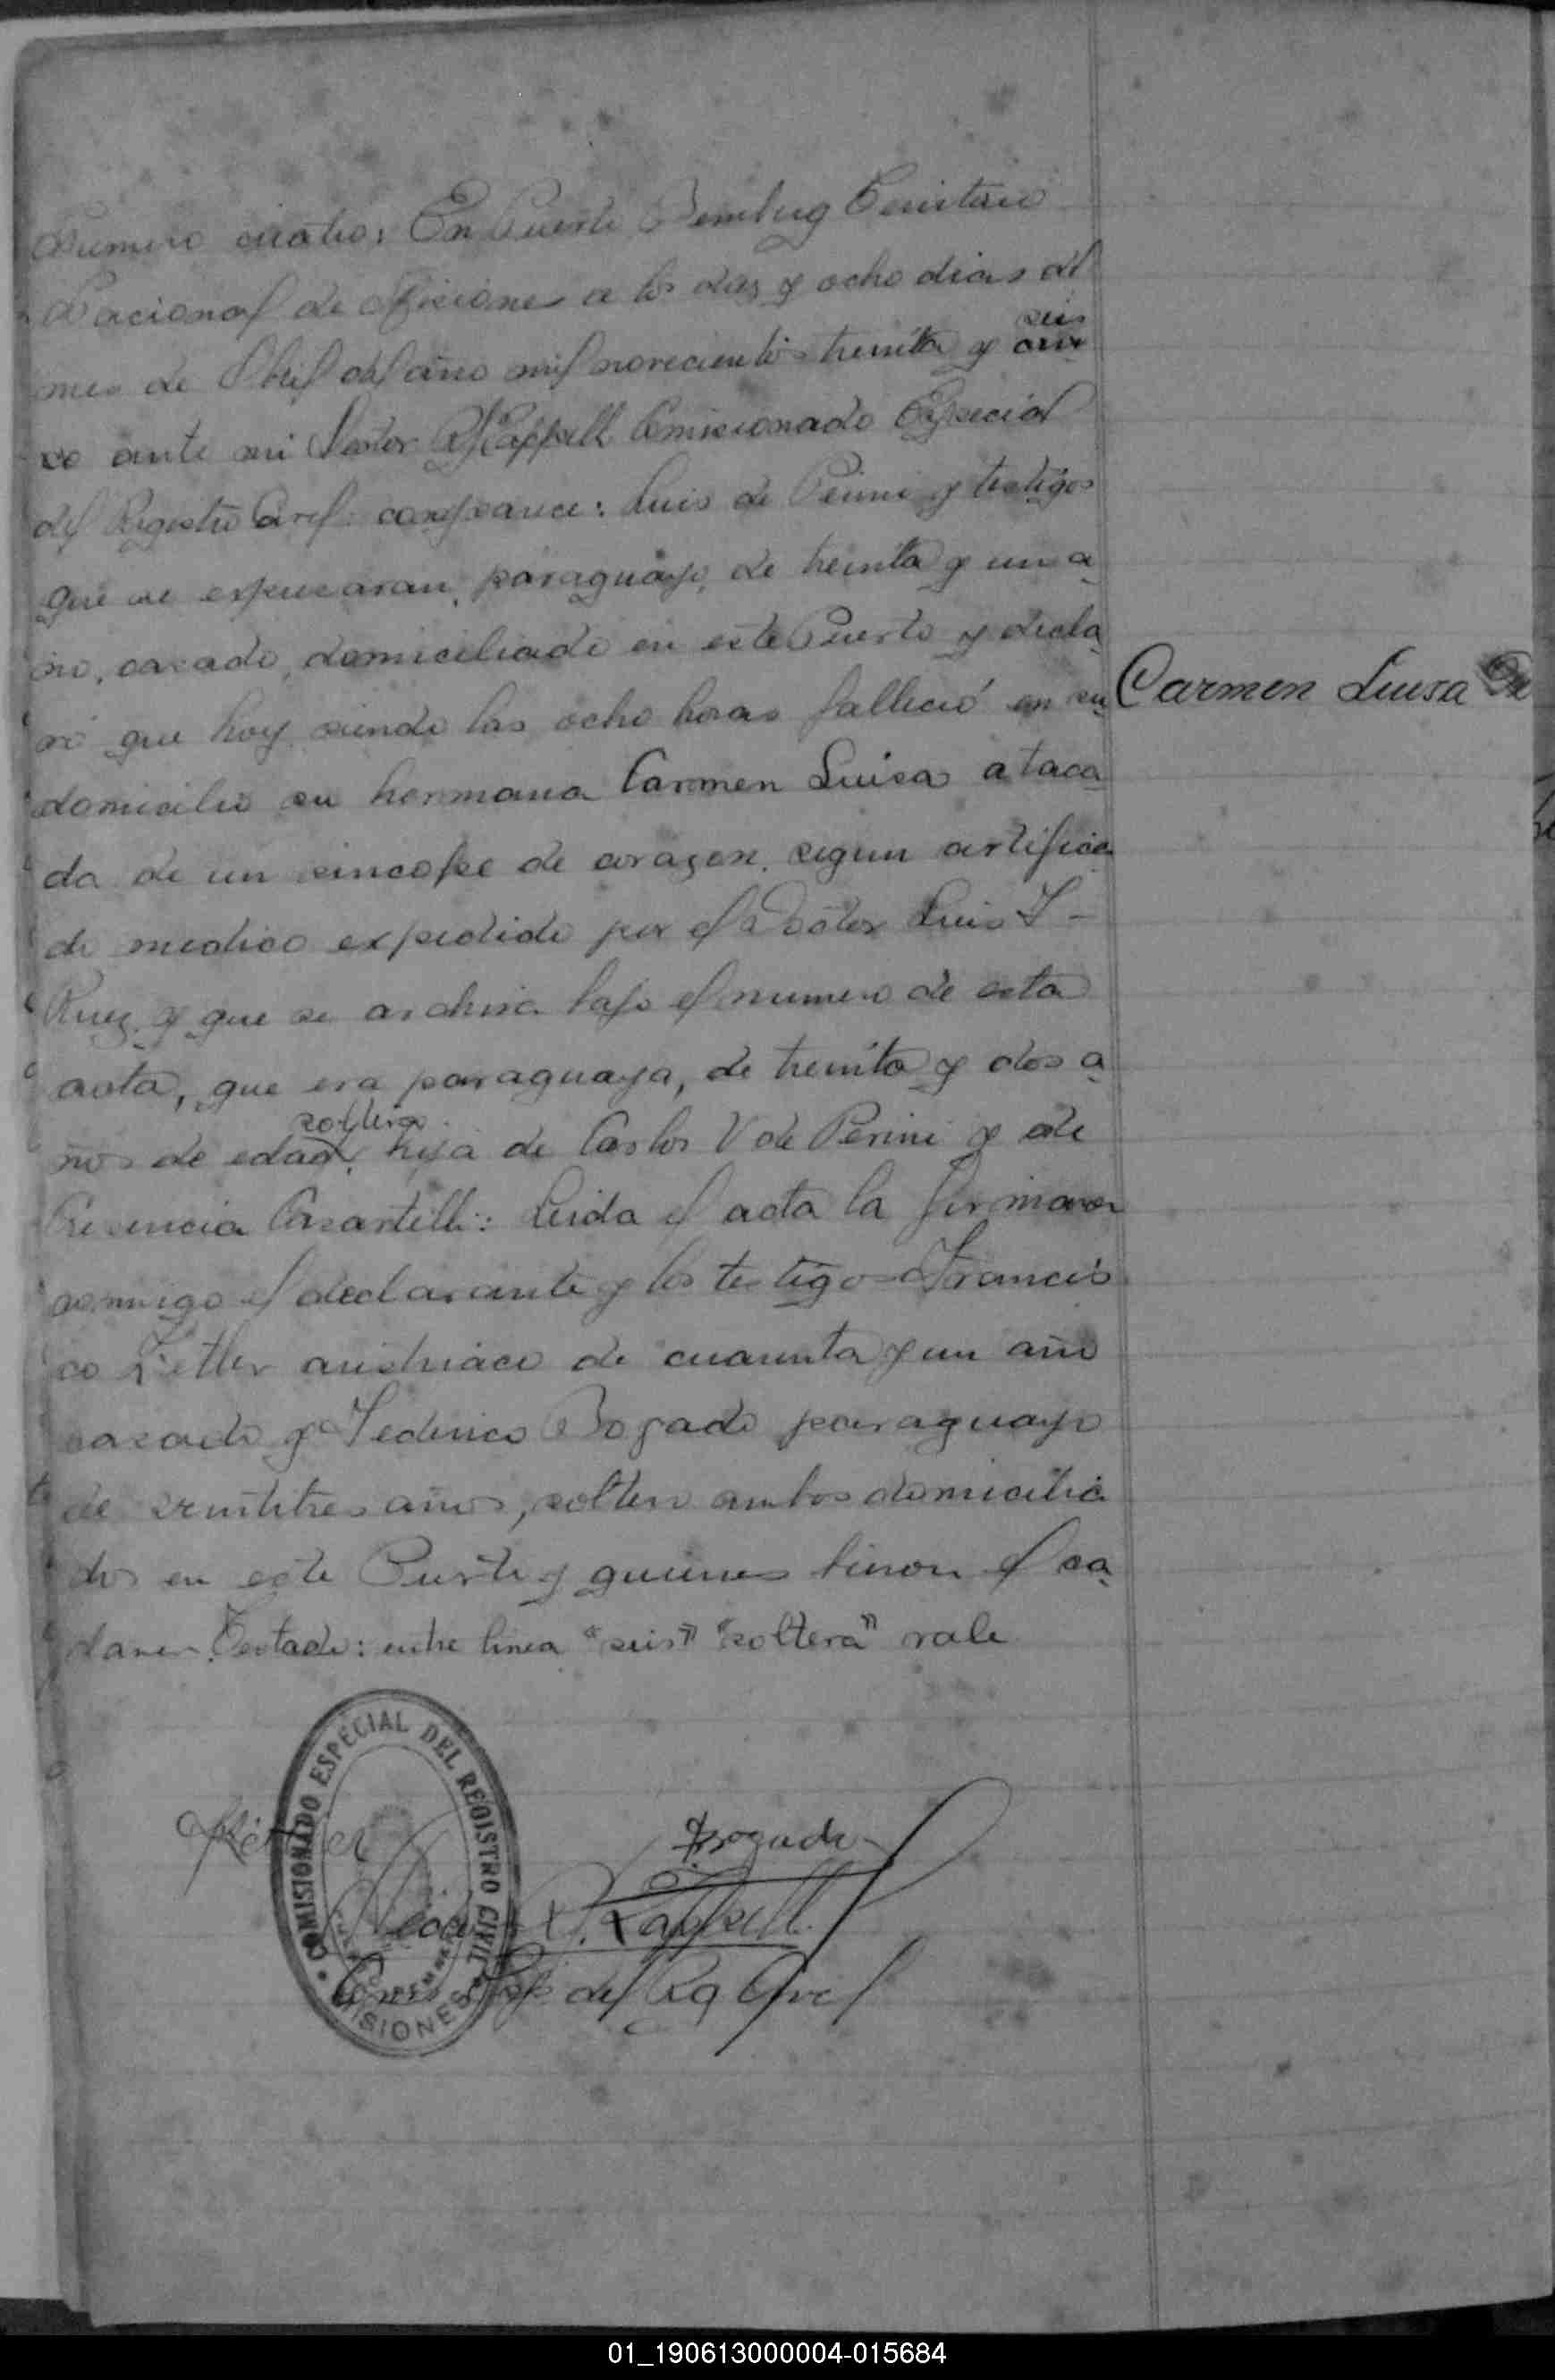 Numero cuatro: En Puerto Bemberg Territorio
Nacional de Misiones a los diez y ocho dias del
mes de Abril del año mil novecientos treinta y
seis
ante mi Nestor R Kappell Comisionado Especial
del Registro Civil comparece: Luis de Perini y testigos
que se expresaran, paraguayo, de treinta y un a
ño, casado, domiciliado en este Puerto y decla
ró que hoy siendo las ocho horas falleció en su
Carmen Luisa De
domicilio su hermana Carmen Luisa ataca
da de un sincope de corazon, segun certifica
do medico expedido por el Doctor Luis F
Ruiz y que se archiva bajo el numero de esta
acta, que era paraguaya, de treinta y dos a
soltera
ños de edad, hija de Carlos V de Perini y de
Casartelli: Leida el acta la firmaron
conmigo el declarante y los testigos Francis
co austriaco de cuarenta y un año
casado y Federico Bogado paraguayo
de veintitres años, soltero ambos domicilia
dos en este Puerto y quienes vieron el ca
daver. Testado: entre linea "seis" "soltera" vale
COMISIONADO ESPECIAL DEL REGISTRO CIVIL
MISIONES
Bogado
R. Kappell
Com. Esp. del Reg Civil
01_190613000004-015684